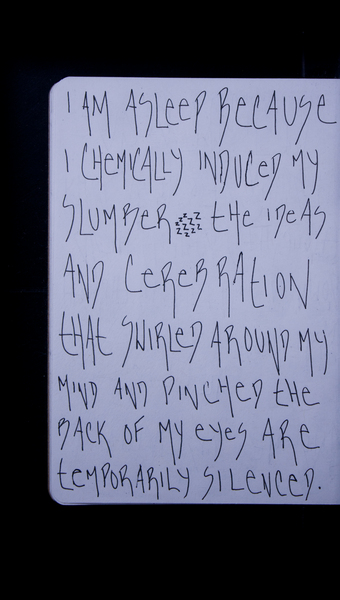 I AM ASLEEP BECAUSE
I CHEMICALLY INDUCED MY
SLUMBER zzzzzzzzz tHe IDeAS
AND CeReBRAtION
tHAt SWIRLeD AROUND MY
MIND AND PINCHeD tHe
BACK OF MY eYeS ARe
teMPORARILY SILeNCeD.